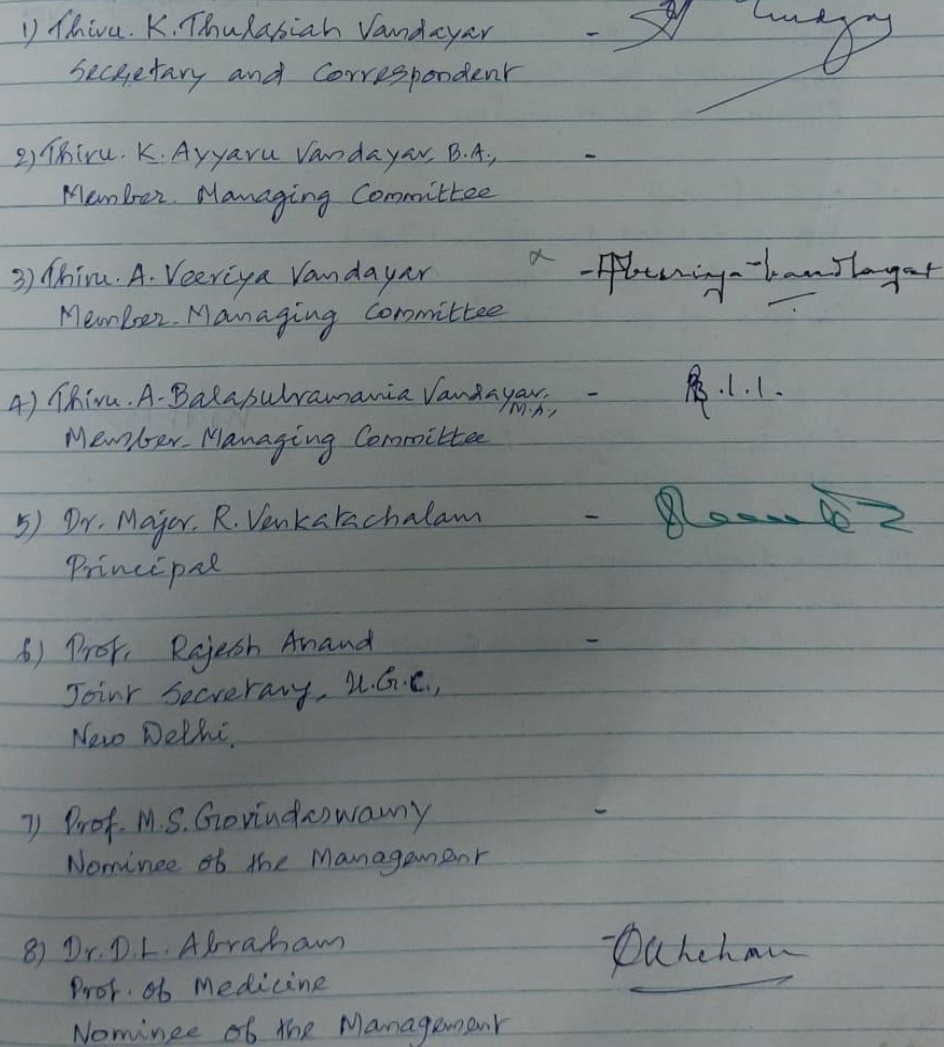 1) Thiru. K. Thulasiah Vandayar -
Secretary and Correspondent
2) Thiru. K. Ayyaru Vandayar, B.A., -
Member. Managing Committee
3) Thiru. A. Veeriya Vandayar -
Member. Managing Committee
4) Thiru. A. Balasubramania Vandayar, M.A., - R.I.I.
Member. Managing Committee
5) Dr. Major. R. Venkatachalam -
Principal
6) Prof. Rajesh Anand -
Joint Secretary, U.G.C.,
New Delhi.
7) Prof. M.S. Govindaswamy -
Nominee of the Management
8) Dr. D.L. Abraham -
Prof. of Medicine
Nominee of the Management